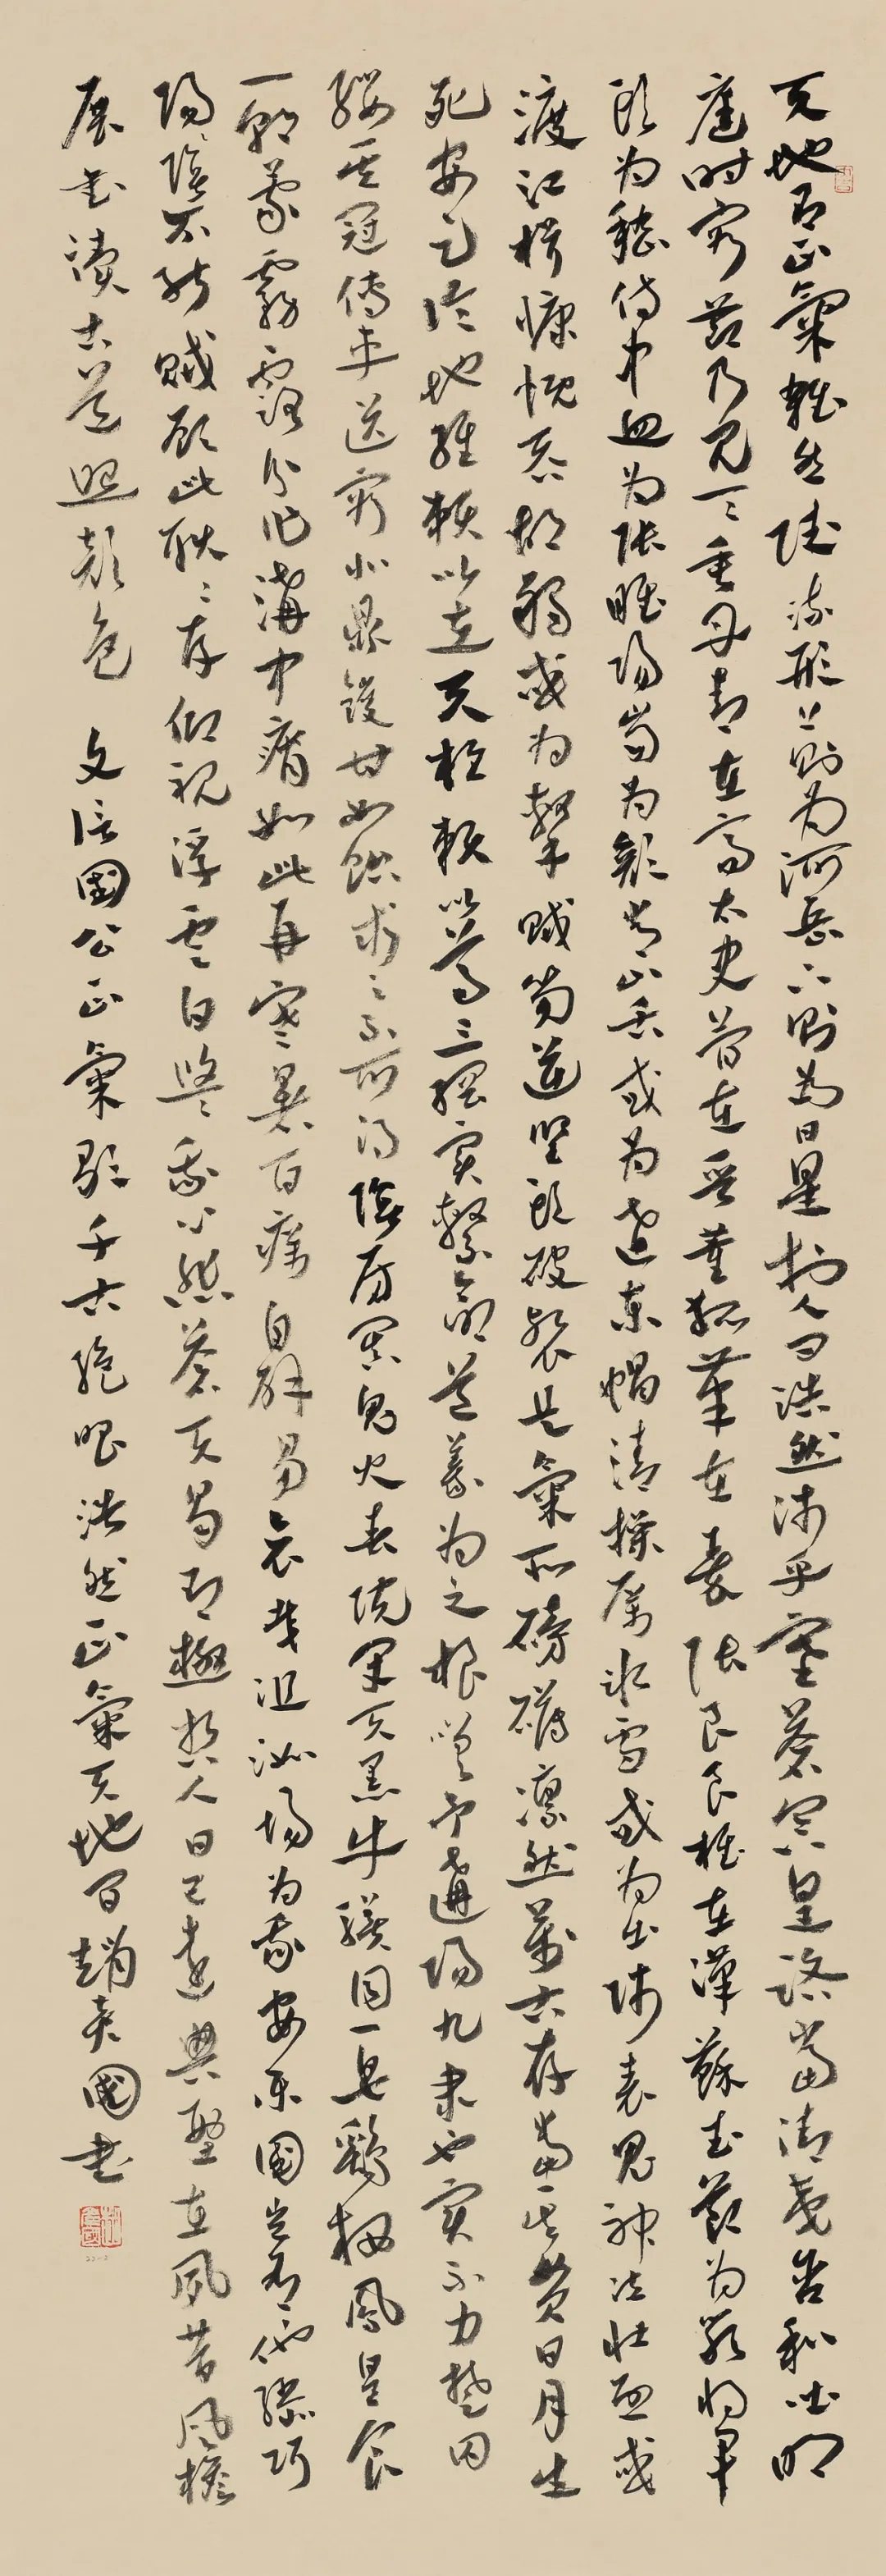 天地有正氣雜然賦流形下則為河岳上則為日星於人曰浩然沛乎塞蒼冥皇路當清夷含和吐明
庭時窮節乃見一一垂丹青在齊太史簡在晉董狐筆在秦張良椎在漢蘇武節為嚴將軍
頭為嵇侍中血為張睢陽齒為顏常山舌或為遼東帽清操厲冰雪或為出師表鬼神泣壯烈或
渡江楫慷慨吞胡羯或為擊賊笏逆豎頭破裂是氣所磅礴凜然萬古存當其貫日月生
死安足論地維賴以立天柱賴以尊三綱實繫命道義為之根嗟予遘陽九隸也實不力楚囚
纓其冠傳車送窮北鼎鑊甘如飴求之不可得陰房闃鬼火春院閟天黑牛驥同一皂雞棲鳳凰食
一朝蒙霧露分作溝中瘠如此再寒暑百癘自辟易哀哉沮洳場為我安樂國豈有他繆巧
陽陰不能賊顧此耿々存仰視浮雲白悠悠我心悲蒼天曷有極哲人日已遠典型在夙昔風檐
展書讀古道照顏色 文信國公正氣歌千古絕唱浩然正氣天地間 趙英國書